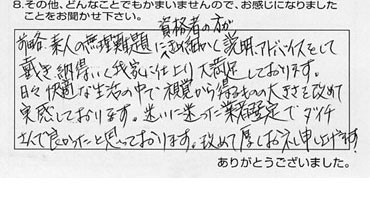 8.その他、どんなことでもかまいませんので、お感じになりました
ことをお聞かせ下さい。
資格者の方が
前略 素人の無理難題にきめ細かく説明、アドバイスをして
戴き納得いく我家に仕上り大満足しております。
日々快適な生活の中で視覚から得るものの大きさを改めて
実感しております。迷いに迷った業者選定でダイチ
さんで良かったと思っております。改めて厚くお礼申し上げます
ありがとうございました。